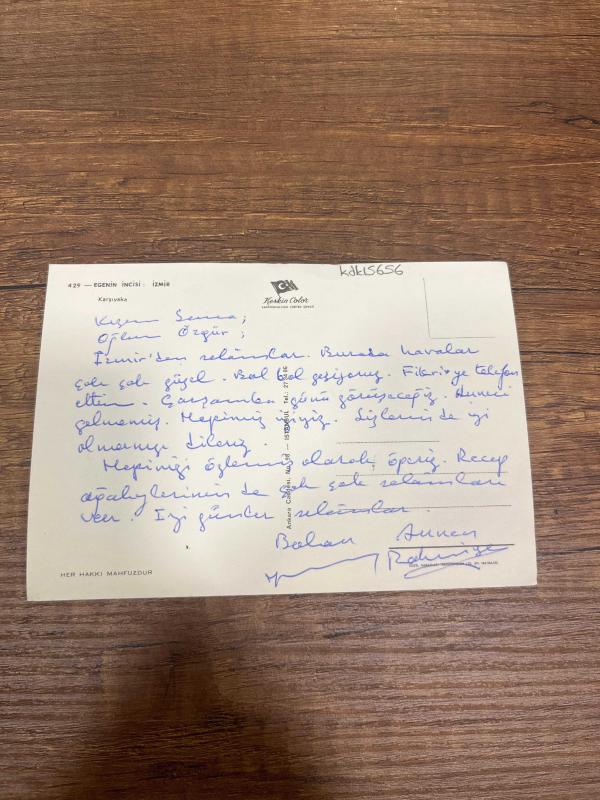 kdk15656
429 — EGENİN İNCİSİ : İZMİR
Karşıyaka
Keskin Color
Kızım Sema;
Oğlum Özgür;
İzmir'den selâmlar. Burada havalar
çok çok güzel. Bol bol geziyoruz. Fikri'ye telefon
ettim. Çarşamba günü görüşeceğiz. Annesi
gelmemiş. Hepimiz iyiyiz. Sizlerin de iyi
olmanızı dileriz.
Hepinizi özlemiş olarak öperiz. Recep
ağabeylerinin de çok çok selâmları
var. İyi günler selâmlar.
Baban Annen
Rahmiye
Ankara Caddesi, No. — İSTANBUL Tel.: 27
HER HAKKI MAHFUZDUR